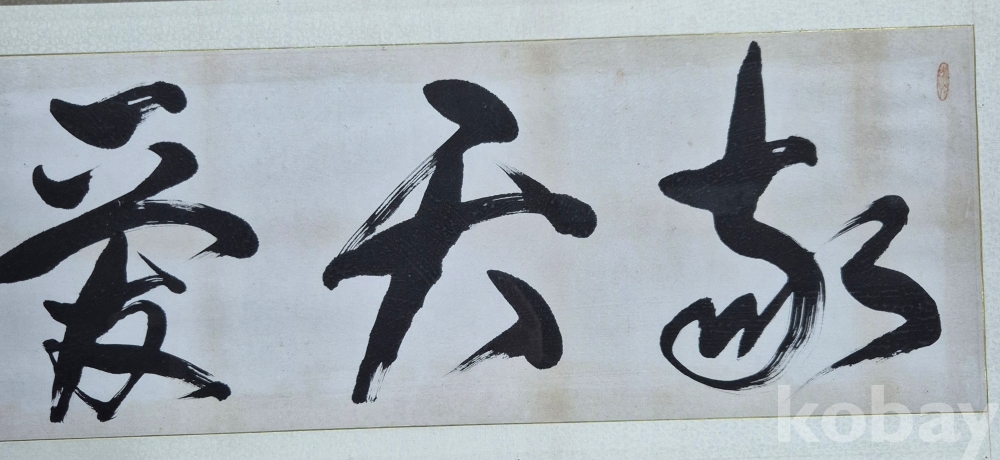 敬天愛
kobay